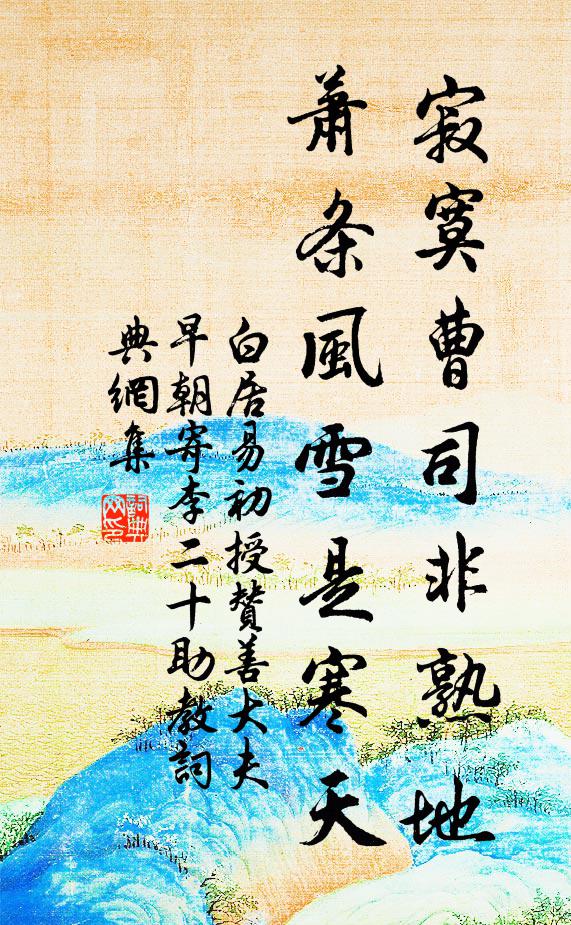 寂寞曹司非熟地
蕭条風雪是寒天
白居易初授贊善大夫
早朝寄李二十助教詞
典網集